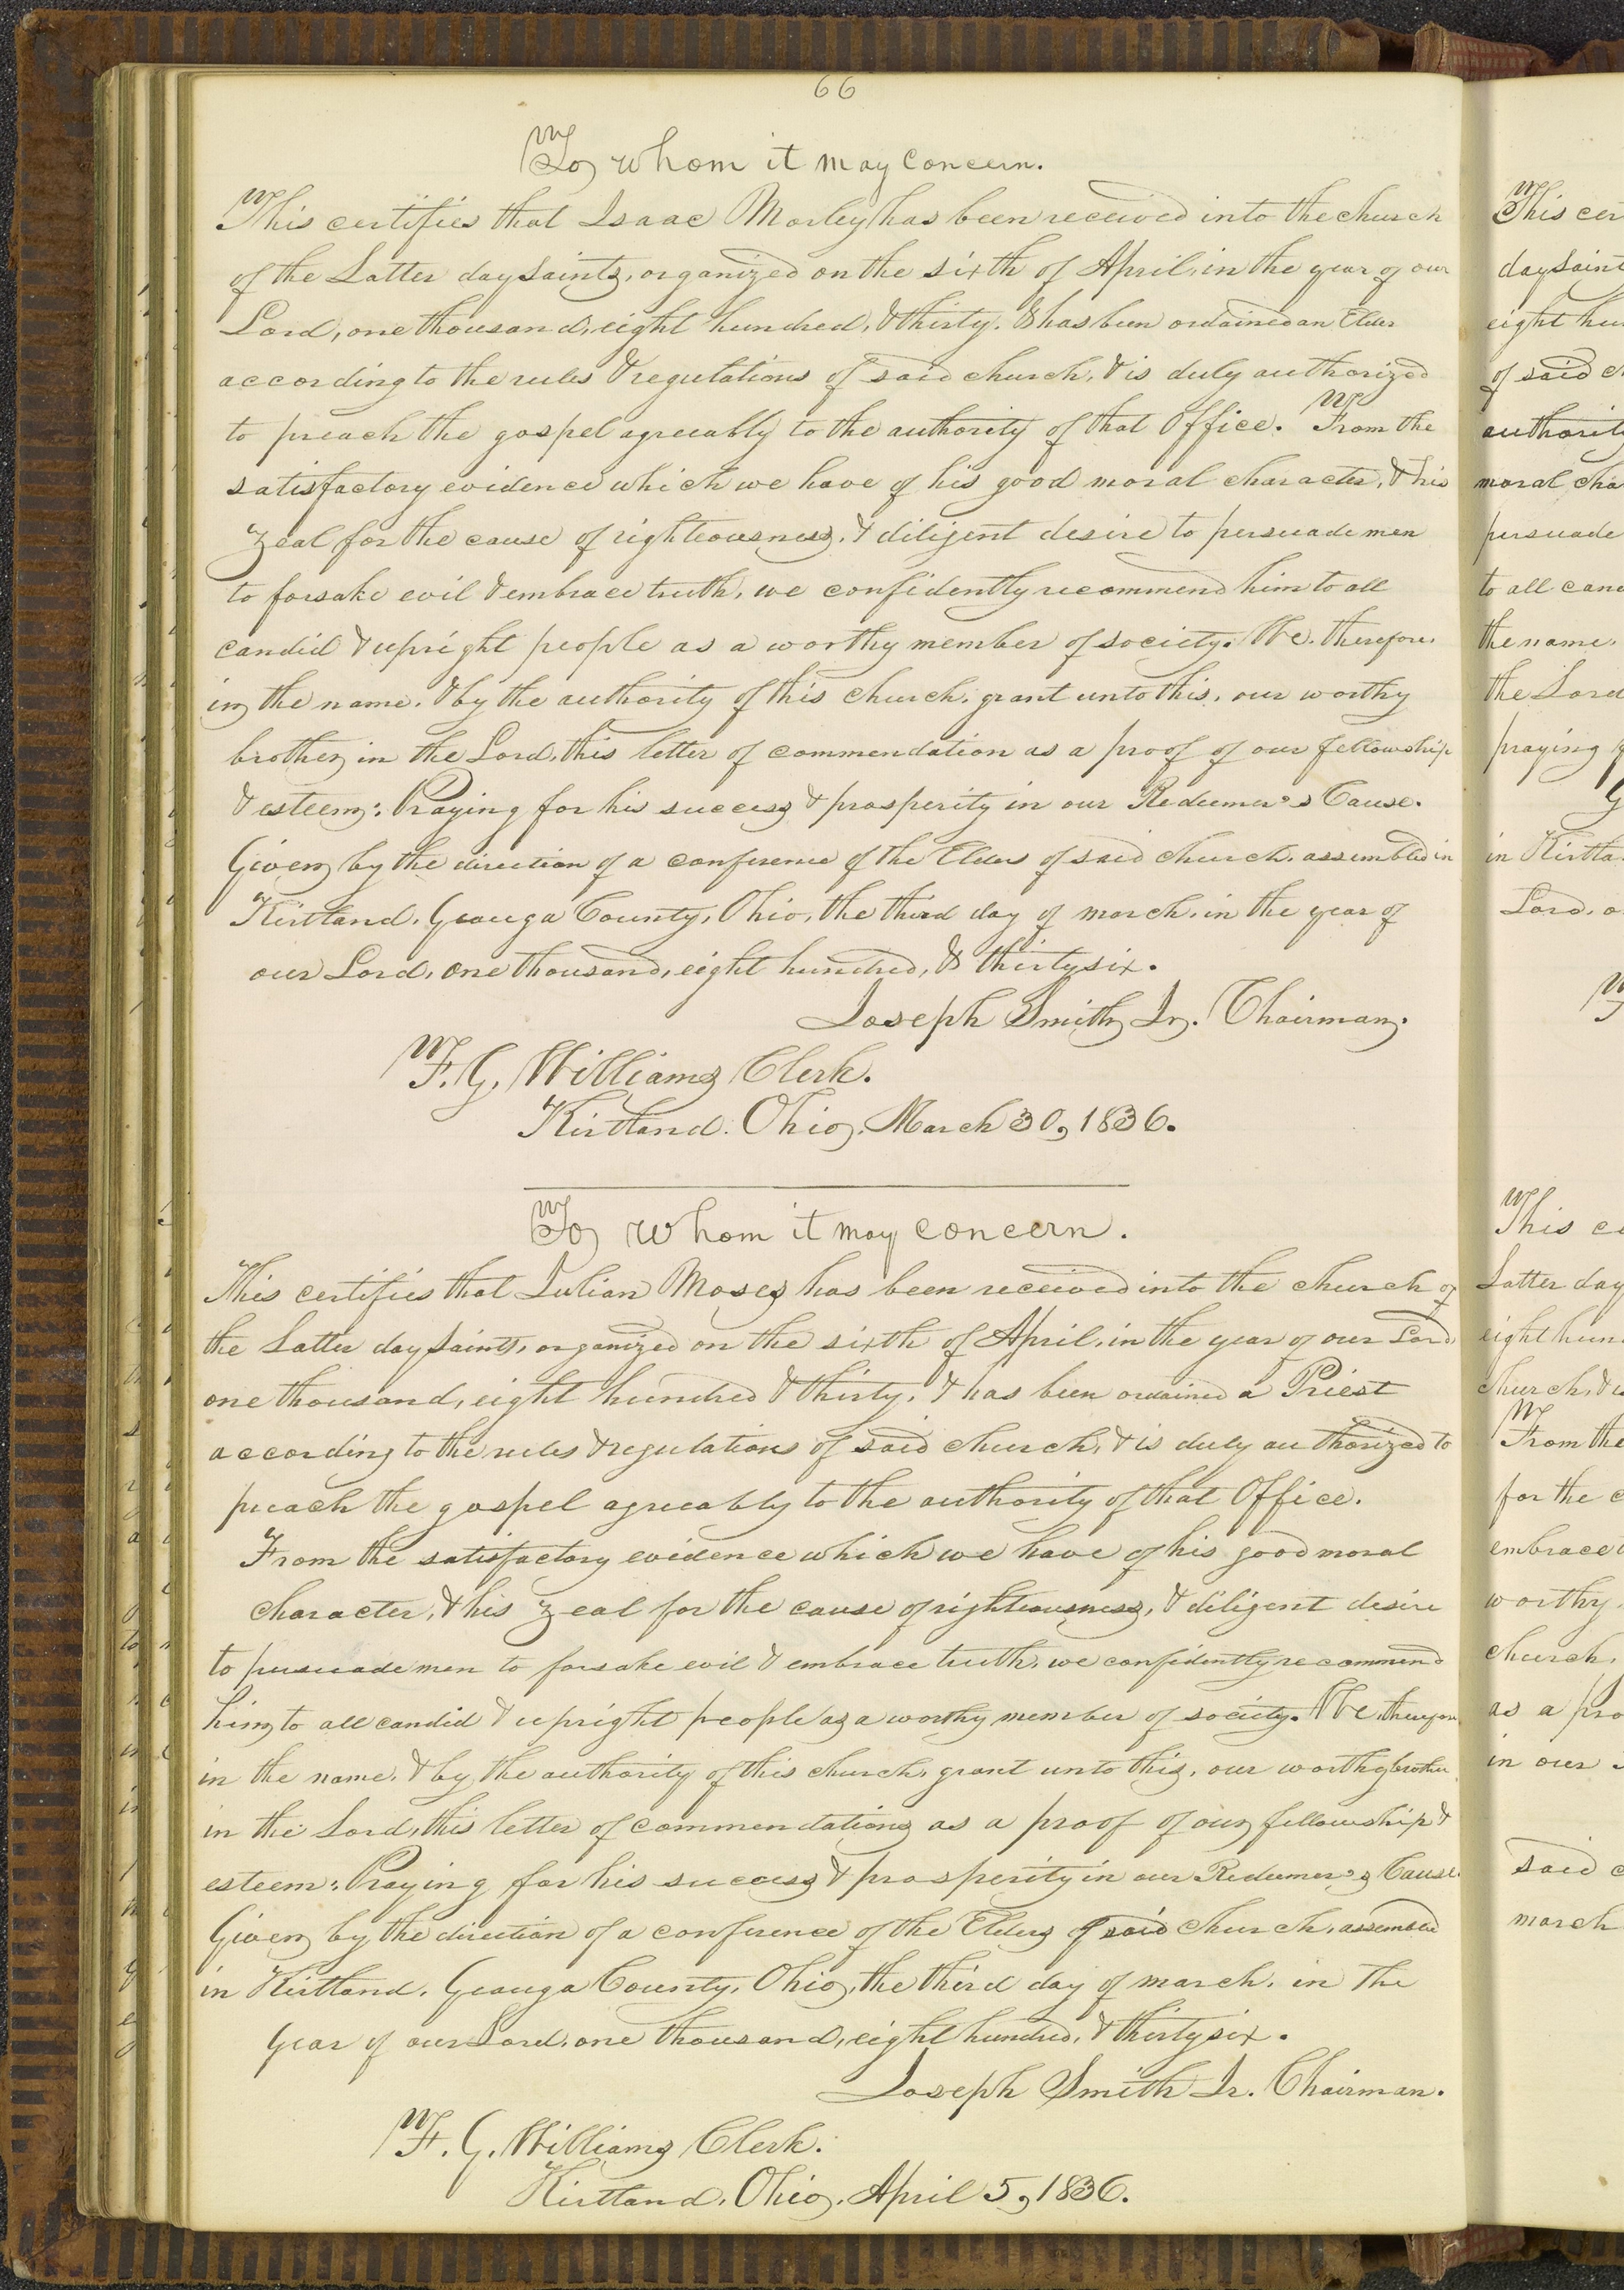 66
To whom it may Concern.
This certifies that Isaac Morley has been received into the church
of the Latter day Saints, organized on the sixth of April, in the year of our
Lord, one thousand, eight hundred, & thirty. & has been ordained an Elder
according to the rules & regulations of said church, & is duly authorized
to preach the gospel agreeably to the authority of that Office. From the
satisfactory evidence which we have of his good moral character, & his
zeal for the cause of righteousness, & diligent desire to persuade men
to forsake evil & embrace truth, we confidently recommend him to all
candid & upright people as a worthy member of society. We, therefore,
in the name, & by the authority of this church, grant unto this, our worthy
brother in the Lord, this letter of commendation as a proof of our fellowship
& esteem: Praying for his success & prosperity in our Redeemer's Cause.
Given by the direction of a conference of the Elders of said church, assembled in
Kirtland, Geauga County, Ohio, the third day of march, in the year of
our Lord, one thousand, eight hundred, & thirty six.
Joseph Smith Jr. Chairman.
F. G. Williams Clerk.
Kirtland. Ohio, March 30, 1836.
To whom it may concern.
This certifies that Julian Moses has been received into the church of
the Latter day Saints, organized on the sixth of April, in the year of our Lord,
one thousand, eight hundred & thirty, & has been ordained a Priest
according to the rules & regulations of said church, & is duly authorized to
preach the gospel agreeably to the authority of that Office.
From the satisfactory evidence which we have of his good moral
character, & his zeal for the cause of righteousness, & diligent desire
to persuade men to forsake evil & embrace truth, we confidently recommend
him to all candid & upright people as a worthy member of society. We, therefore
in the name, & by the authority of this church, grant unto this, our worthy brother
in the Lord, this letter of commendation as a proof of our fellowship &
esteem: Praying for his success & prosperity in our Redeemer's Cause.
Given by the direction of a conference of the Elders of said church, assembled
in Kirtland, Geauga County, Ohio, the third day of march, in the
year of our Lord, one thousand, eight hundred, & thirty six.
Joseph Smith Jr. Chairman.
F. G. Williams Clerk.
Kirtland, Ohio, April 5, 1836.
This cer
day Saint
eight hu
of said c
authorit
moral cha
persuade
to all can
the name,
the Lord
praying
in Kirtla
Lord, o
This ce
Latter day
eight hun
church, &
From the
for the c
embrace
worthy
church,
as a pro
in our
said c
march